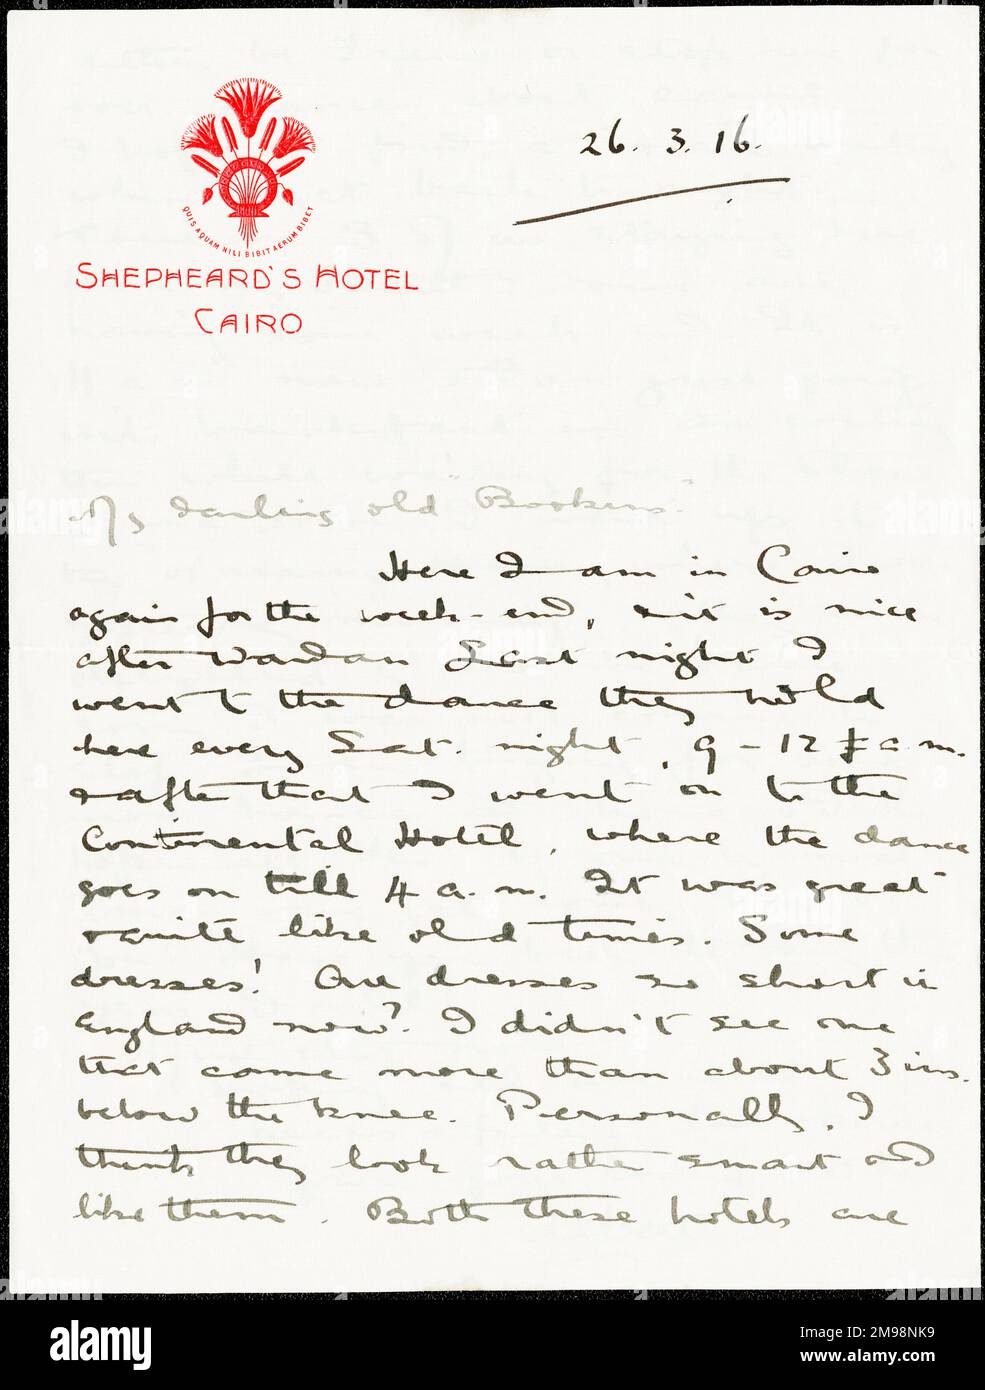 26. 3. 16.
QUIS AQUAM NILI BIBIT AERUM BIBET
SHEPHEARD'S HOTEL
CAIRO
My darling old "Bookems".
Here I am in Cairo
again for the week-end, & it is nice
after Wardan Last night I
went to the dance they hold
here every Sat. night, 9 - 12 a.m.
& after that I went on to the
Continental Hotel, where the dance
goes on till 4 a.m. It was great
& quite like old times. Some
dresses! Are dresses so short in
England now? I didn't see one
that came more than about 3 ins.
below the knee. Personally, I
think they look rather smart and
like them. Both these hotels are
alamy
Image ID: 2M98NK9
www.alamy.com